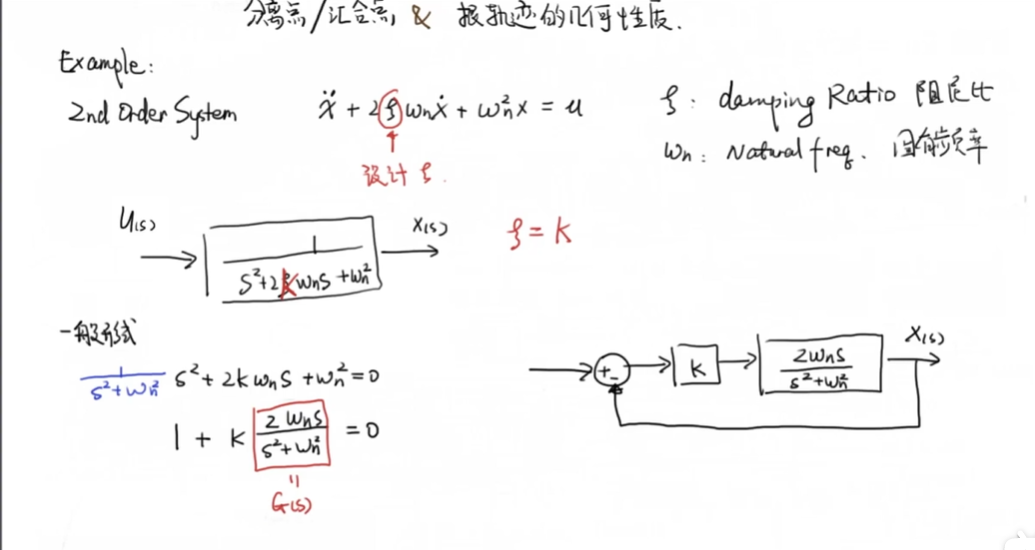 分离点/汇合点 & 根轨迹的几何性质.
Example:
2nd Order System
ẍ + 2ξωnẋ + ωn²x = u
设计 ξ.
ξ: damping Ratio 阻尼比
ωn: Natural freq. 固有频率
U(s)
1
S²+2kωnS+ωn²
X(s)
ξ = k
一般形式
1
S²+ωn²
S²+2kωnS+ωn²=0
1 + k
2ωnS
S²+ωn²
=0
"
G(s)
+
-
k
2ωnS
S²+ωn²
X(s)